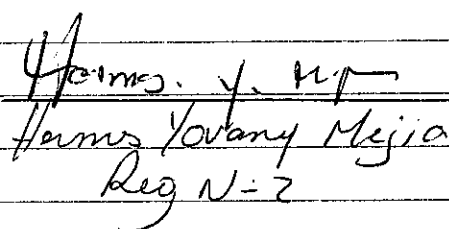 Hermes. y. M
Hermes Yovany Mejia
Reg N-2